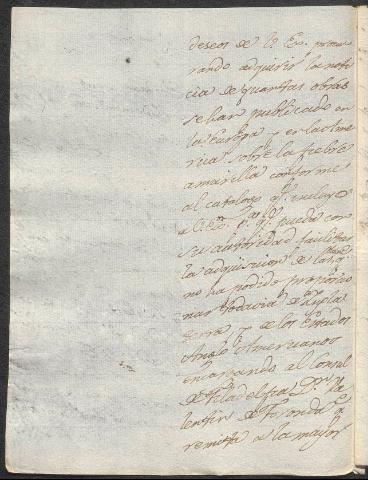 deseos de V. Ex. procu
rando adquirir la noti
cia de quantas obras
se han publicado en
la Europa y en la Ame
rica sobre la fiebre
amarilla conforme
al catalogo qe. incluyo
a V. Ex. pa. qe. pueda con
su autoridad facilitar
la adquisicion de las qe.
no ha podido proporcio
nar todavia de Ynglat
erra, y de los Estados
Anglo Americanos
encargando al Consul
de Filadelfia Dn. Va
lentin de Foronda qe.
remita a la mayor